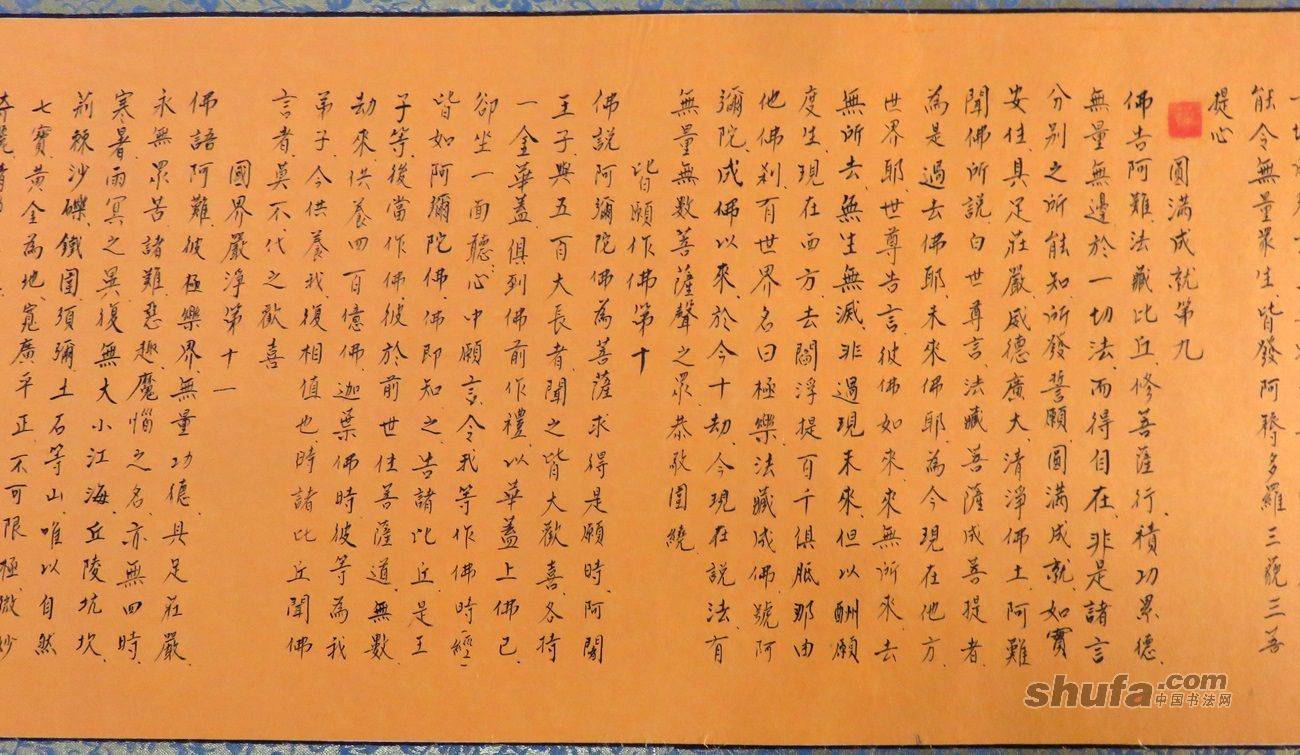 能令無量眾生、皆發阿耨多羅三藐三菩
提心
圓滿成就第九
佛告阿難、法藏比丘、修菩薩行、積功累德、
無量無邊、於一切法、而得自在、非是諸言
分別之所能知、所發誓願、圓滿成就、如實
安住、具足莊嚴、威德廣大、清淨佛土、阿難
聞佛所說、白世尊言、法藏菩薩成菩提者
為是過去佛耶、未來佛耶、為今現在他方、
世界耶、世尊告言、彼佛如來、來無所來、去
無所去、無生無滅、非過現未來、但以酬願
度生、現在西方、去閻浮提百千俱胝那由
他佛剎、有世界名曰極樂、法藏成佛、號阿
彌陀、成佛以來、於今十劫、今現在說法、有
無量無數菩薩聲之眾、恭敬圍繞、
皆願作佛第十
佛說阿彌陀佛為菩薩求得是願時、阿闍
王子、與五百大長者、聞之皆大歡喜、各持
一金華蓋、俱到佛前作禮、以華蓋上佛已、
卻坐一面聽、心中願言、令我等作佛時、
皆如阿彌陀佛、佛即知之、告諸比丘、是王
子等、後當作佛、彼於前世住菩薩道、無數
劫來、供養四百億佛、迦葉佛時、彼等為我
弟子、今供養我、復相值也、時諸比丘聞佛
言者、莫不代之歡喜
國界嚴淨第十一
佛語阿難、彼極樂界、無量功德、具足莊嚴、
永無眾苦、諸難、惡趣、魔惱之名、亦無四時、
寒暑、雨冥之異、復無大小江海、丘陵坑坎、
荊棘沙礫、鐵圍、須彌、土石等山、唯以自然
七寶、黃金為地、寬廣平正、不可限極、微妙
shufa.com
中国书法网